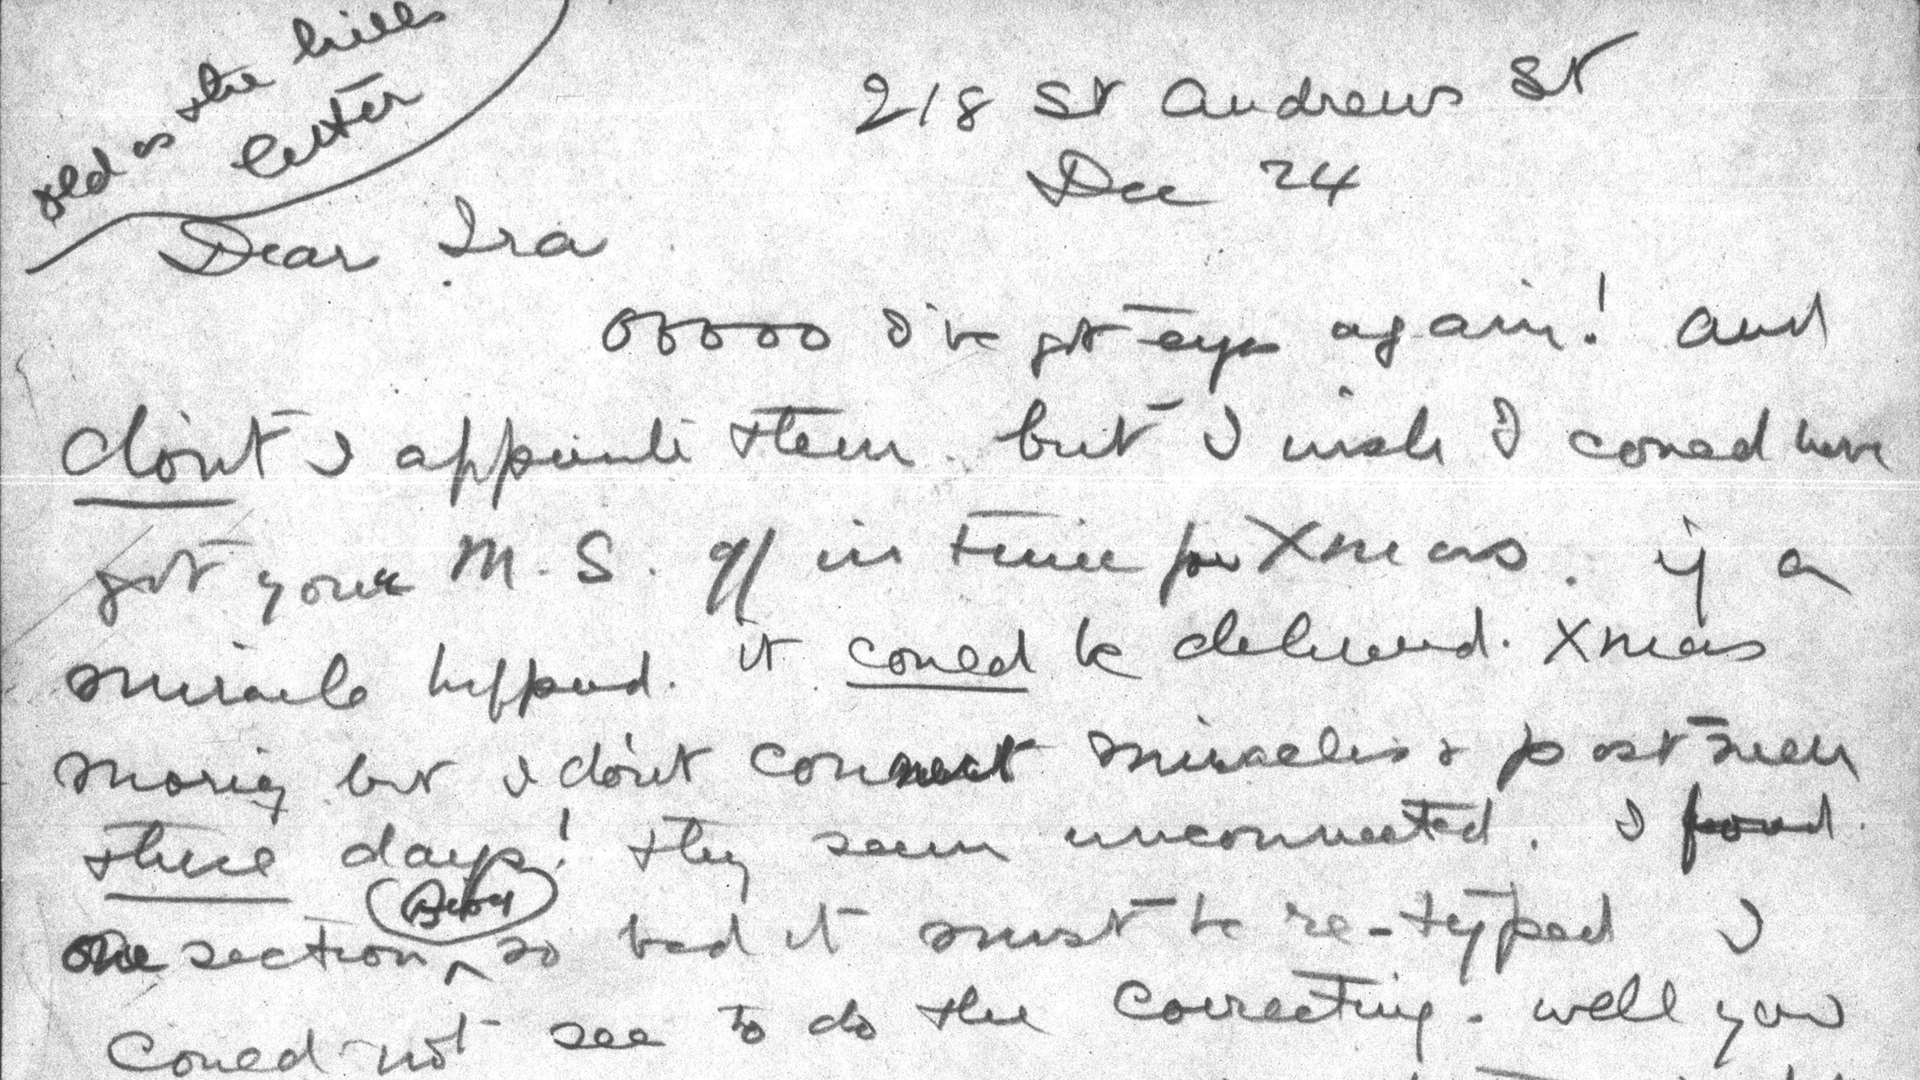 old as the hills
letter
218 St Andrews St
Dec 24
Dear Ira
ooooo I've got eyes again! and
don't I appreciate them. but I wish I could have
got your M.S. off in time for Xmas. if a
miracle happend. it could be delivered. Xmas
morning but I don't connect miracles & postmen
these days! they seem unconnected. I found
one section so bad it must be re-typed I
could not see to do the correcting. well you